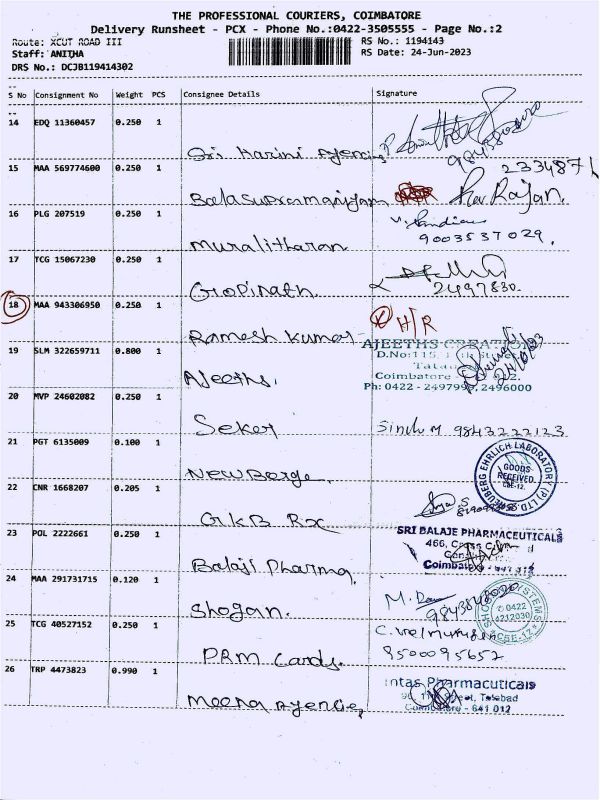 THE PROFESSIONAL COURIERS, COIMBATORE
Delivery Runsheet - PCX - Phone No.:0422-3505555 - Page No.:2
Route: XCUT ROAD III
RS No.: 1194143
Staff: ANITHA
RS Date: 24-Jun-2023
DRS No.: DCJB119414302
--
S No Consignment No Weight PCS Consignee Details Signature
--
14 EDQ 11360457 0.250 1
Sri Harini Agencies
98438
15 MAA 569774600 0.250 1
2334871
Balasupramaniyam
Rajan.
16 PLG 207519 0.250 1
Muralitharan
9003537029.
17 TCG 15067230 0.250 1
Gopinath.
2497830.
18 MAA 943306950 0.250 1
H/R
Ramesh Kumar
19 SLM 322659711 0.800 1
AJEETHS CREATION
D.No:115, 11th Street
Coimbatore
Ph: 0422 - 2497999, 2496000
Ajeeths.
20 MVP 24602082 0.250 1
Seker
Sindu M. 9843222123
21 PGT 6135009 0.100 1
NEUBERG EHRLICH LABORATORY (P) LTD.
GOODS
RECEIVED
CBE-12.
New Berge.
22 CNR 1668207 0.205 1
GKB Rx
23 POL 2222661 0.250 1
SRI BALAJE PHARMACEUTICALS
466, Cross Cut
Coimbatore
Balaji Pharma,
24 MAA 291731715 0.120 1
Shogan.
M.
SYSTEMS
✆ 0422
4212030
CBE-12
25 TCG 40527152 0.250 1
C. Velmurugan
9500095652
PRM Cards.
26 TRP 4473823 0.990 1
Intas Pharmacuticals
Street, Tatabad
Coimbatore - 641 012
Meena Agencie,